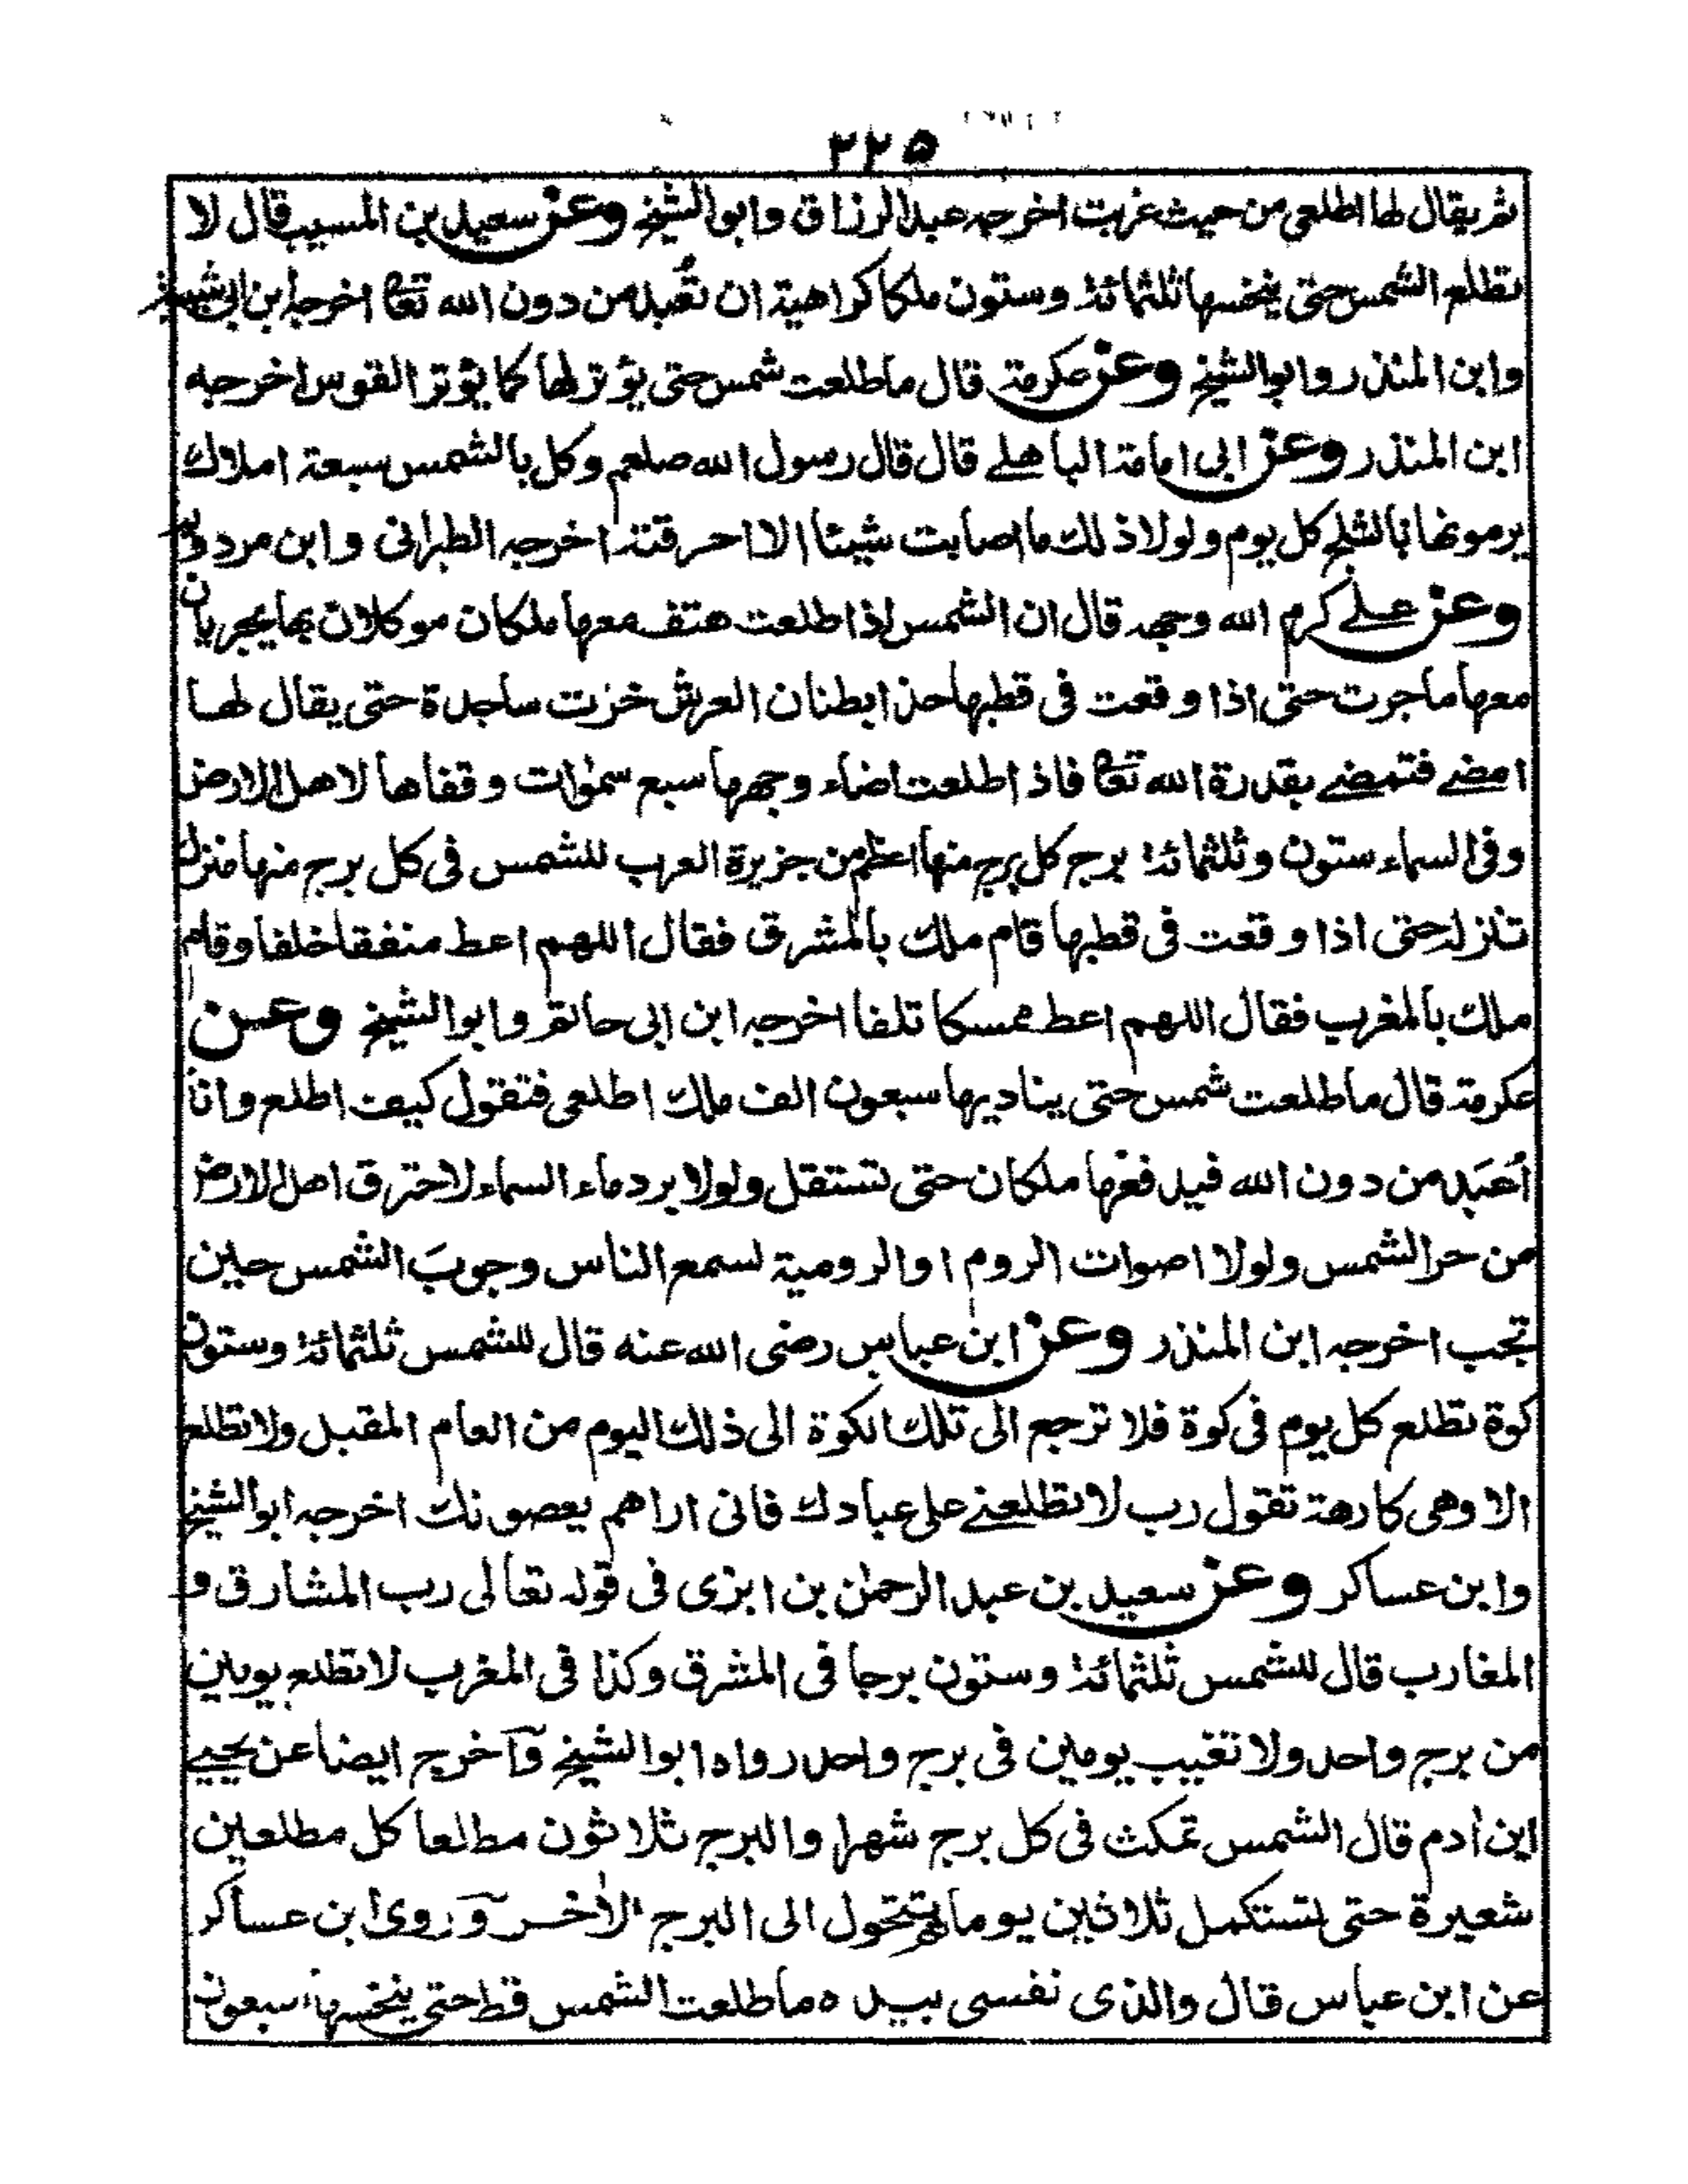 ٢٢٥
ثم يقال لها اطلعي من حيث غربت اخرجه عبد الرزاق وابو الشيخ وعن سعيد بن المسيب قال لا
تطلع الشمس حتى ينخسها ثلثمائة وستون ملكا كراهية ان تُعبد من دون الله تعا اخرجه ابن ابي شيبة
وابن المنذر وابو الشيخ وعن عكرمة قال ما طلعت شمس حتى يؤتر لها كما يؤتر القوس اخرجه
ابن المنذر وعن ابى امامة الباهلے قال قال رسول الله صلعم وكل بالشمس سبعة املاك
يرمونها بالثلج كل يوم ولولا ذلك ما اصابت شيئا الا احرقته اخرجه الطبرانى وابن مردويه
وعن علے كرم الله وجهه قال ان الشمس اذا طلعت هتف معها ملكان موكلان بها يجريان
معها ما جرت حتى اذا وقعت فى قطبها حذا بطنان العرش خرت ساجدة حتى يقال لها
امضے فتمضے بقدرة الله تعا فاذا طلعت اضاء وجهها سبع سمٰوات وقفاها لاهل الارض
وفى السماء ستون وثلثمائة برج كل برج منها اعظم من جزيرة العرب للشمس فى كل برج منها منزل
تنزله حتى اذا وقعت فى قطبها قام ملك بالمشرق فقال اللهم اعط منفقا خلفا وقام
ملك بالمغرب فقال اللهم اعط ممسكا تلفا اخرجه ابن ابى حاتم وابو الشيخ وعن
عكرمة قال ما طلعت شمس حتى يناديها سبعون الف ملك اطلعى فتقول كيف اطلع وانا
اُعبَد من دون الله فيدفعها ملكان حتى تستقل ولولا برد ماء السماء لاحترق اهل الارض
من حر الشمس ولولا اصوات الروم او الرومية لسمع الناس وجوبَ الشمس حين
تجب اخرجه ابن المنذر وعن ابن عباس رضى الله عنه قال للشمس ثلثمائة وستون
كوة تطلع كل يوم فى كوة فلا ترجع الى تلك الكوة الى ذلك اليوم من العام المقبل ولا تطلع
الا وهى كارهة تقول رب لا تطلعنے على عبادك فانى اراهم يعصونك اخرجه ابو الشيخ
وابن عساكر وعن سعيد بن عبد الرحمٰن بن ابزى فى قوله تعالى رب المشارق و
المغارب قال للشمس ثلثمائة وستون برجا فى المشرق وكذا فى المغرب لا تطلع يومين
من برج واحد ولا تغيب يومين فى برج واحد رواه ابو الشيخ وآخرج ايضا عن يحيے
ابن ادم قال الشمس تمكث فى كل برج شهرا والبرج ثلاثون مطلعا كل مطلعين
شعيرة حتى تستكمل ثلاثين يوما ثم تتحول الى البرج الاٰخر وروى ابن عساكر
عن ابن عباس قال والذى نفسى بيده ما طلعت الشمس قط حتى ينخسها سبعون